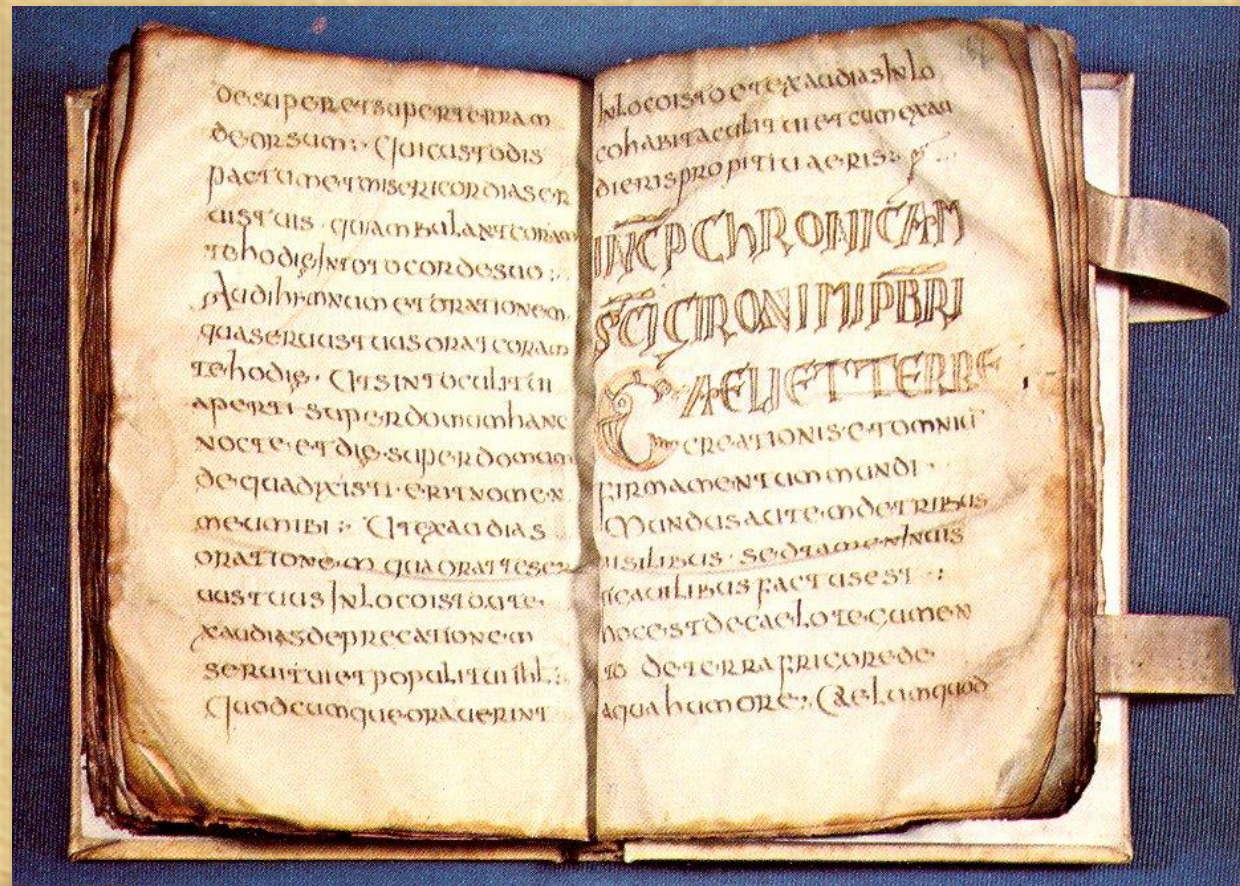 desuperetsuperterram
deorsum:· Quicustodis
pactumetmisericordiaser
uistuis · quiambulantcoram
tehodie/Intotocordesuo :·
Audihymnumetorationem
quaseruustuusoratcoram
tehodie · Utsintoculitui
apertisuperdomumhanc
nocteetdie·superdomum
dequadixisti·eritnomen
meumibi :· Utexaudias
orationemquaoratteser
uustuus Inlocoisto.ute·
xaudiasdeprecationem
seruituietpopulituihl :·
Quodcumqueorauerint
Inlocoistoetexaudias Inlo
cohabitaculituietcumexau
dierispropitiuaeris
INCP CHRONICAM
SCI GIRONIMI PBRI
CAELI ET TERRE
creationisetomniu
firmamentummundi ·
Mundus
sedtamen
factusest ·:
hocestdecaelotecumen
to deterrafricorede
aquahumore :· Caelumquod